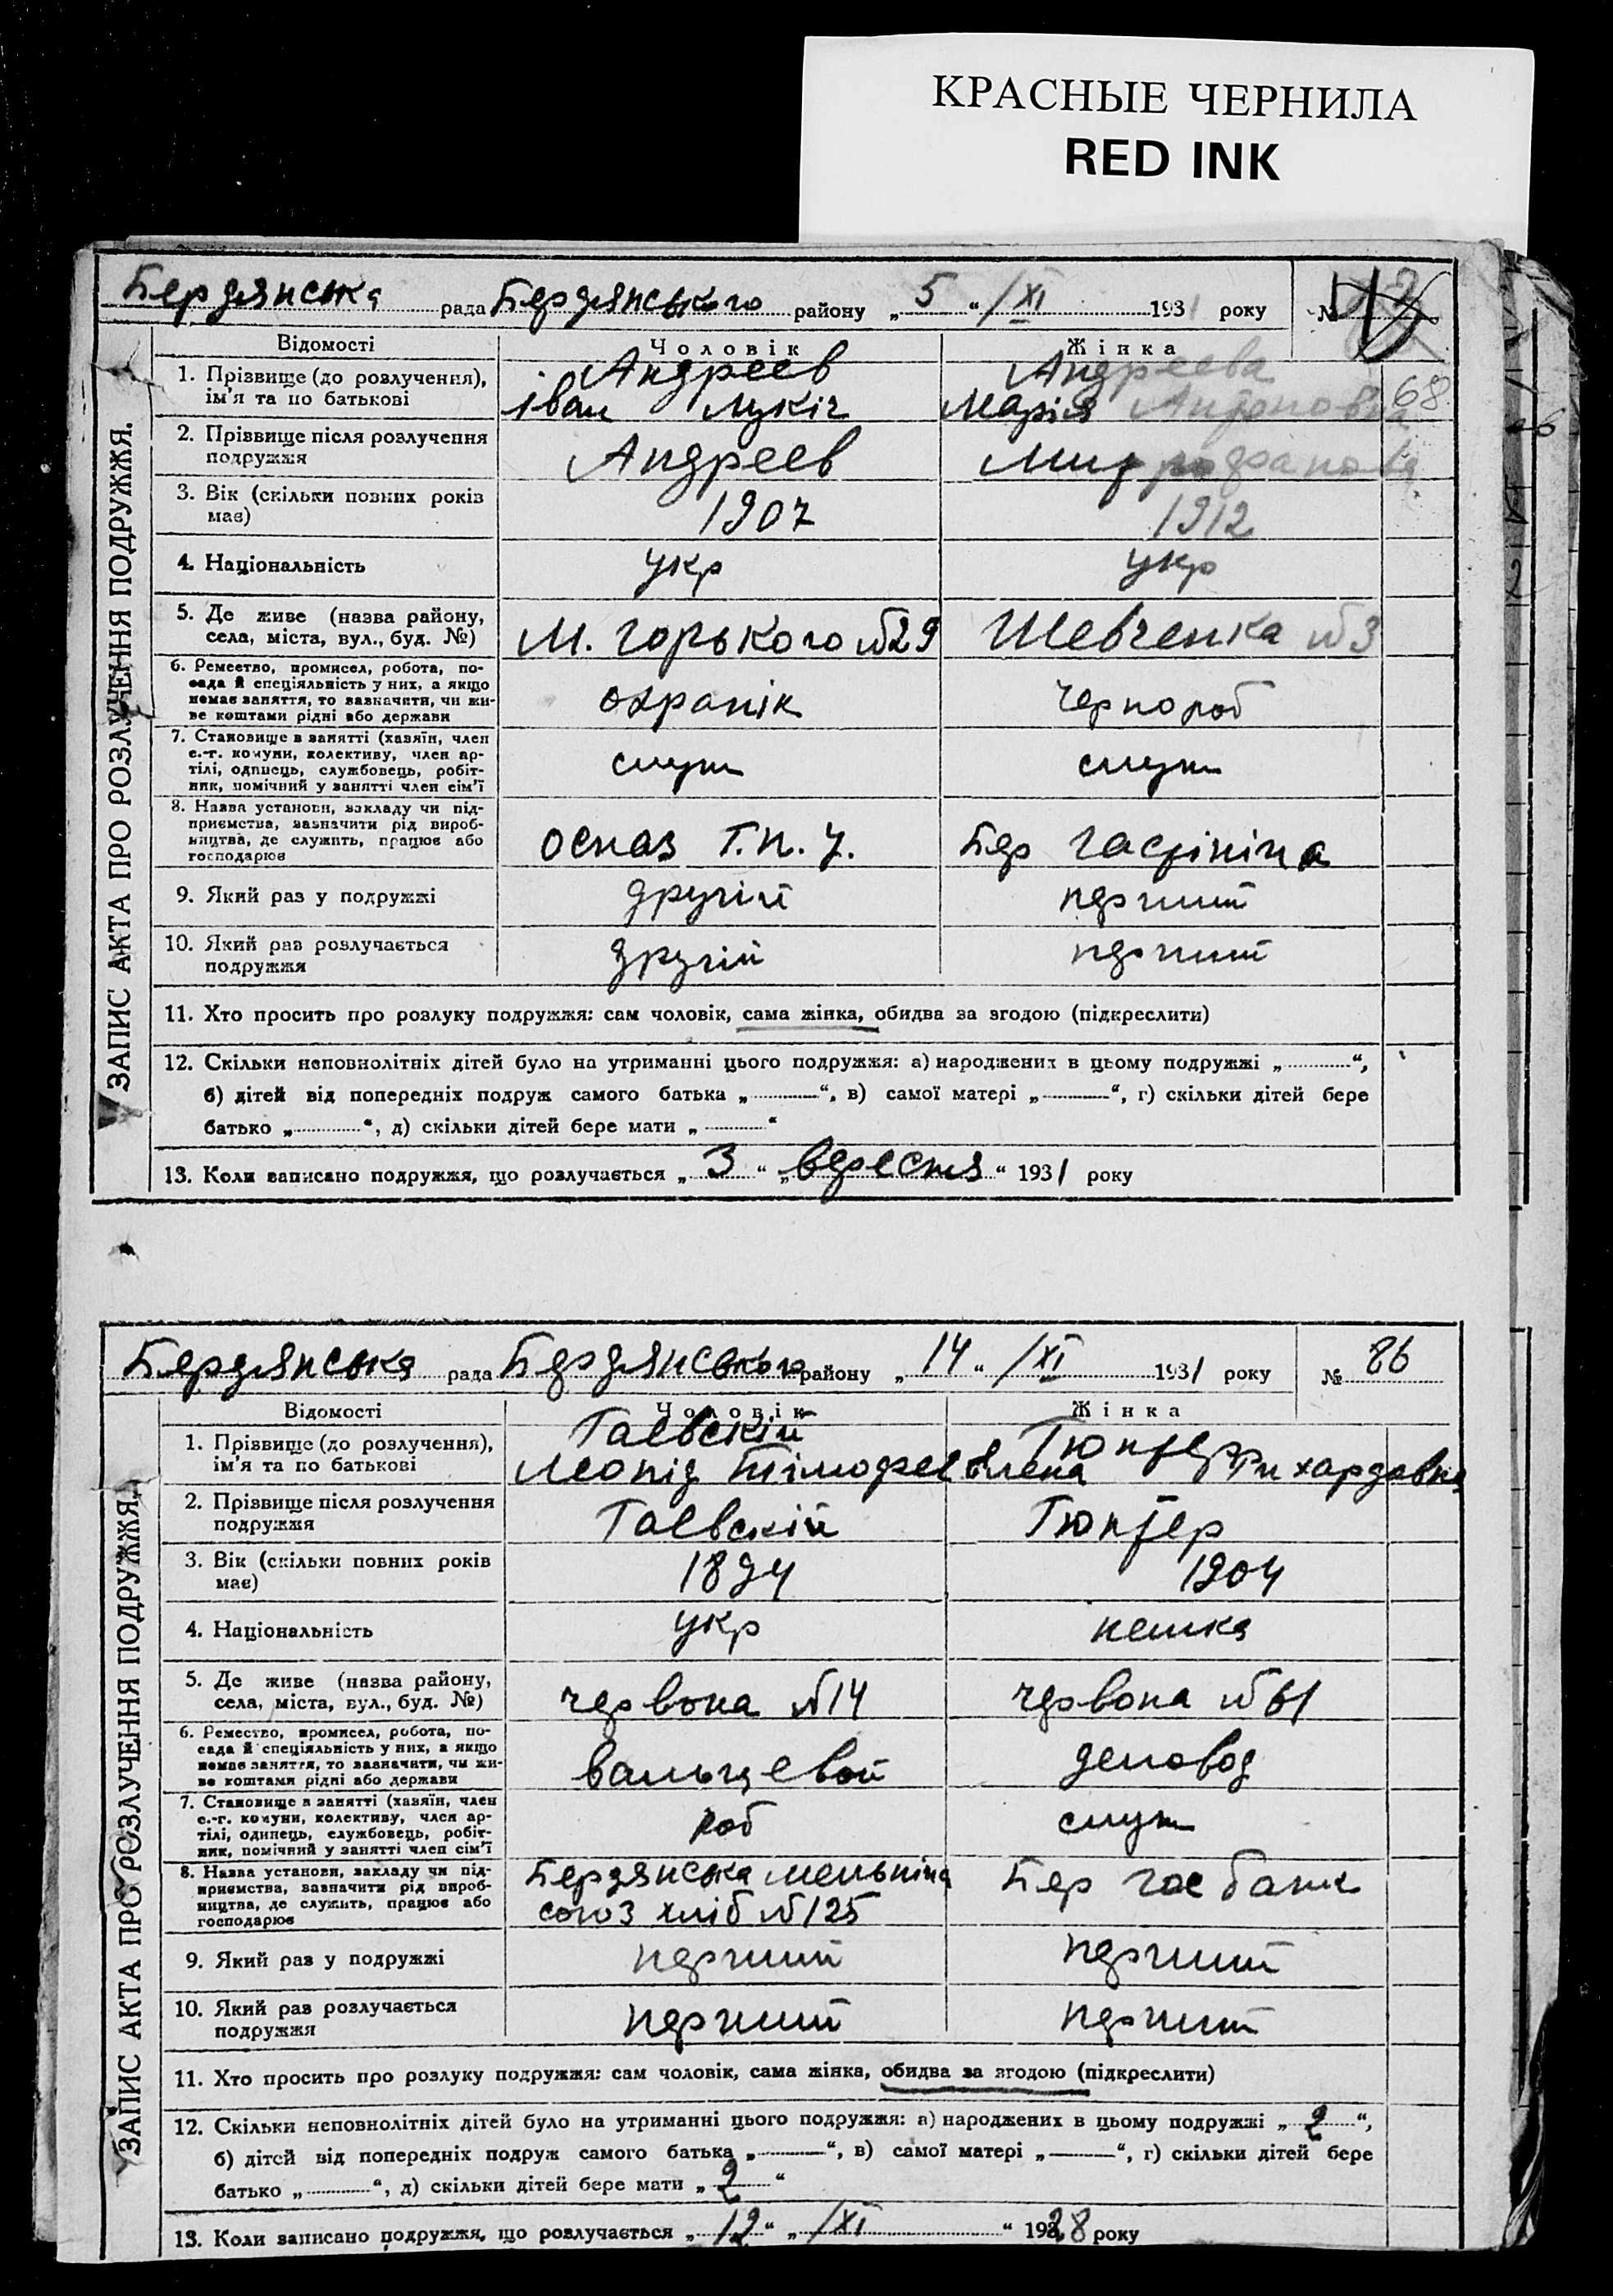 КРАСНЫЕ ЧЕРНИЛА
RED INK
Бердянська рада Бердянського району „ 5 “ /XI 1931 року №
Відомості Чоловік Жінка
ЗАПИС АКТА ПРО РОЗЛУЧЕННЯ ПОДРУЖЖЯ.
1. Прізвище (до розлучення), ім’я та по батькові
Андреев
Іван Лукіч
Андреева
Марія Антоновна
68
2. Прізвище після розлучення подружжя
Андреев
3. Вік (скільки повних років має)
1907
1912
4. Національність
укр
укр
5. Де живе (назва району, села, міста, вул., буд. №)
М. Горького №29
Шевченка №3
6. Ремество, промисел, робота, по-
сада й спеціяльність у них, а якщо
немає заняття, то зазначити, чи жи-
ве коштами рідні або держави
охранік
чернороб
7. Становище в занятті (хазяїн, член
с.-г. комуни, колективу, член ар-
тілі, одинець, службовець, робіт-
ник, помічний у занятті член сім’ї
служ
служ
8. Назва установи, закладу чи під-
приємства, зазначити рід вироб-
ництва, де служить, працює або
господарює
оспаз Г.П.У.
Бер
9. Який раз у подружжі
другій
перший
10. Який раз розлучається
подружжя
другій
перший
11. Хто просить про розлуку подружжя: сам чоловік, сама жінка, обидва за згодою (підкреслити)
12. Скільки неповнолітніх дітей було на утриманні цього подружжя: а) народжених в цьому подружжі „ “,
б) дітей від попередніх подруж самого батька „ “, в) самої матері „ “, г) скільки дітей бере
батько „ “, д) скільки дітей бере мати „ “
13. Коли записано подружжя, що розлучається „ 3 “ „ вересня “ 1931 року
Бердянська рада Бердянського району „ 14 “ /XI 1931 року № 86
Відомості Чоловік Жінка
ЗАПИС АКТА ПРО РОЗЛУЧЕННЯ ПОДРУЖЖЯ.
1. Прізвище (до розлучення),
ім’я та по батькові
Гаевскій
Леонід Тімофее
Гюнтер
Елена Рихардовна
2. Прізвище після розлучення
подружжя
Гаевскій
Гюнтер
3. Вік (скільки повних років
має)
1894
1904
4. Національність
укр
немка
5. Де живе (назва району,
села, міста, вул., буд. №)
червона №14
червона №61
6. Ремество, промисел, робота, по-
сада й спеціяльність у них, а якщо
немає заняття, то зазначити, чи жи-
ве коштами рідні або держави
вальцевой
деловод
7. Становище в занятті (хазяїн, член
с.-г. комуни, колективу, член ар-
тілі, одинець, службовець, робіт-
ник, помічний у занятті член сім’ї
роб
служ
8. Назва установи, закладу чи під-
приємства, зазначити рід вироб-
ництва, де служить, працює або
господарює
Бердянська мельніца
союз хліб №125
Бер гос банк
9. Який раз у подружжі
перший
перший
10. Який раз розлучається
подружжя
перший
перший
11. Хто просить про розлуку подружжя: сам чоловік, сама жінка, обидва за згодою (підкреслити)
12. Скільки неповнолітніх дітей було на утриманні цього подружжя: а) народжених в цьому подружжі „ 2 “,
б) дітей від попередніх подруж самого батька „ “, в) самої матері „ “, г) скільки дітей бере
батько „ “, д) скільки дітей бере мати „ 2 “
13. Коли записано подружжя, що розлучається „ 12 “ „ /XI “ 1928 року